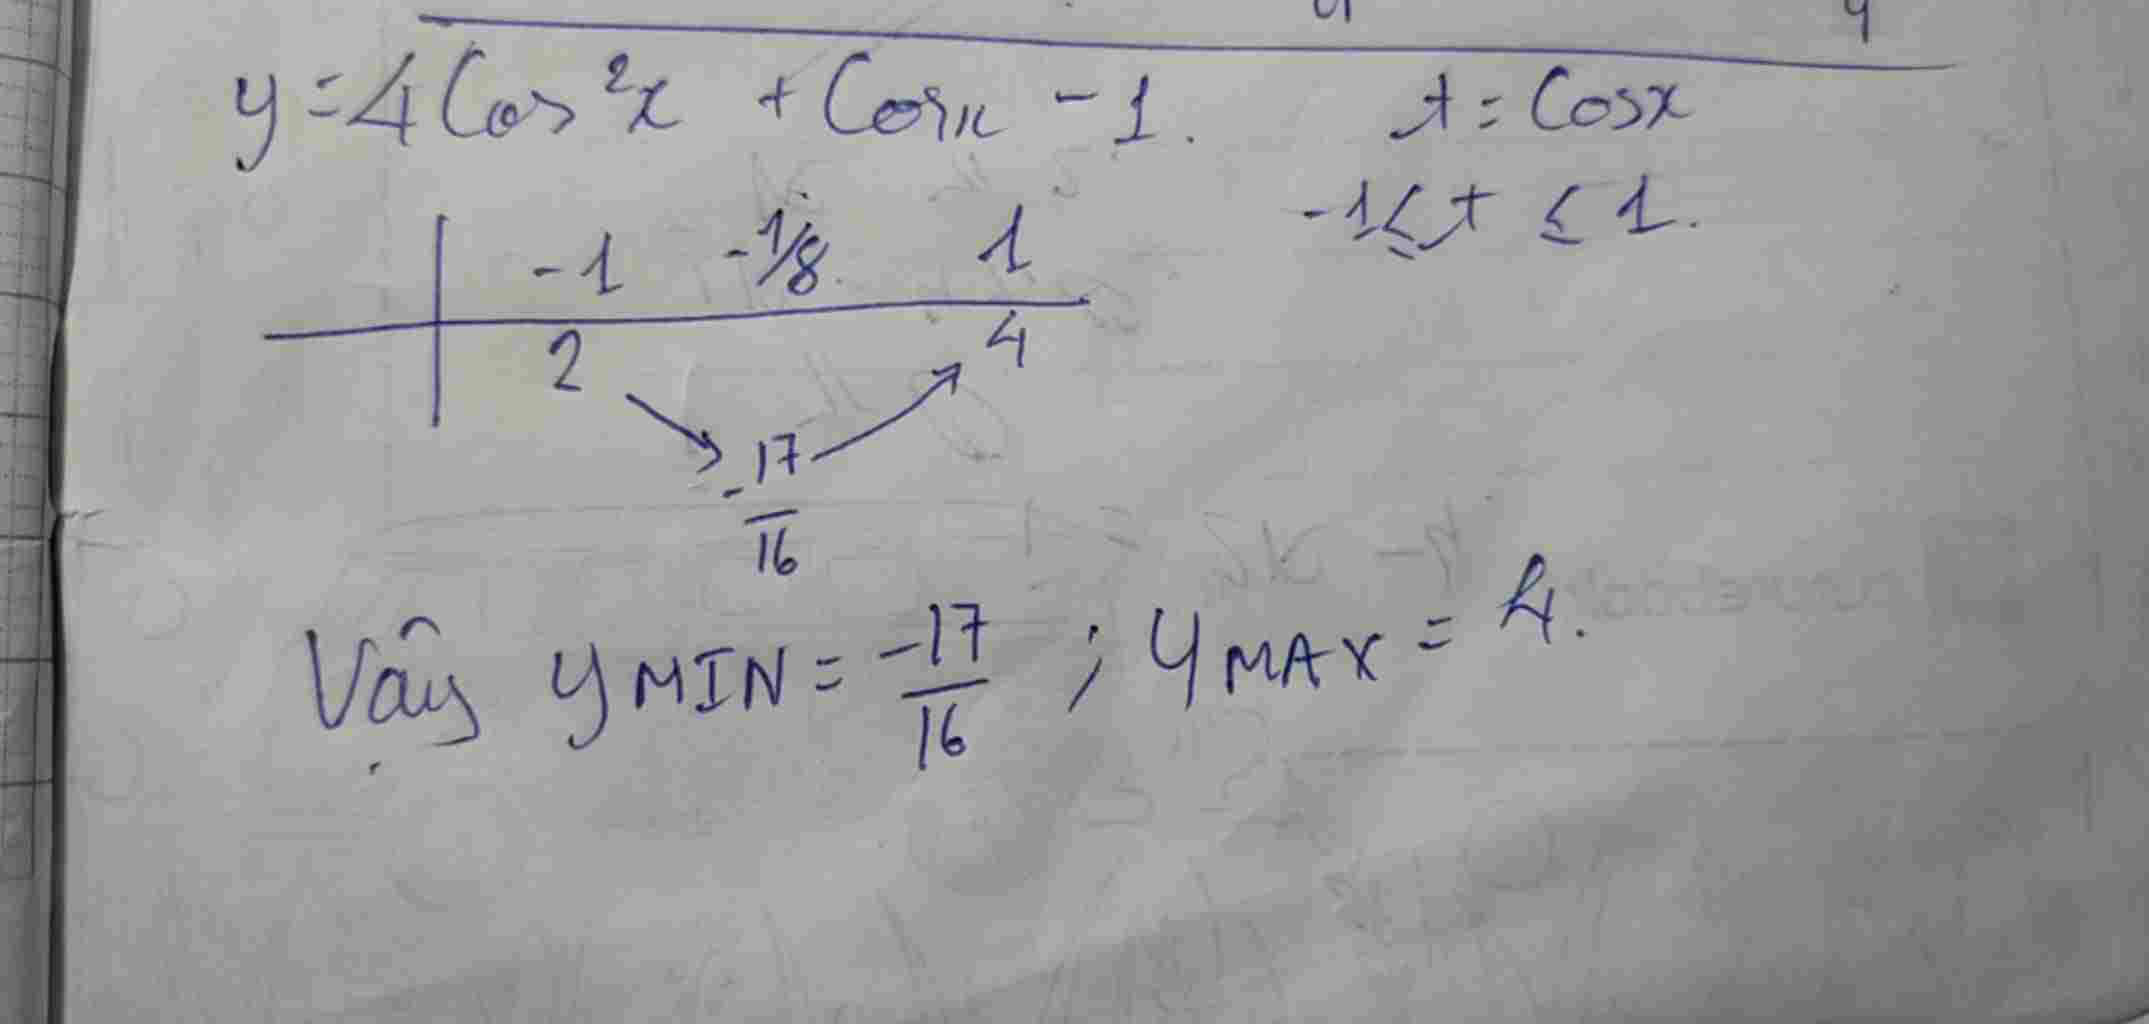 y = 4 Cos²x + Cosx - 1. t = Cosx
-1 ≤ t ≤ 1.
-1 -1/8 1
2 4
-17/16
Vậy yMIN = -17/16 ; yMAX = 4.